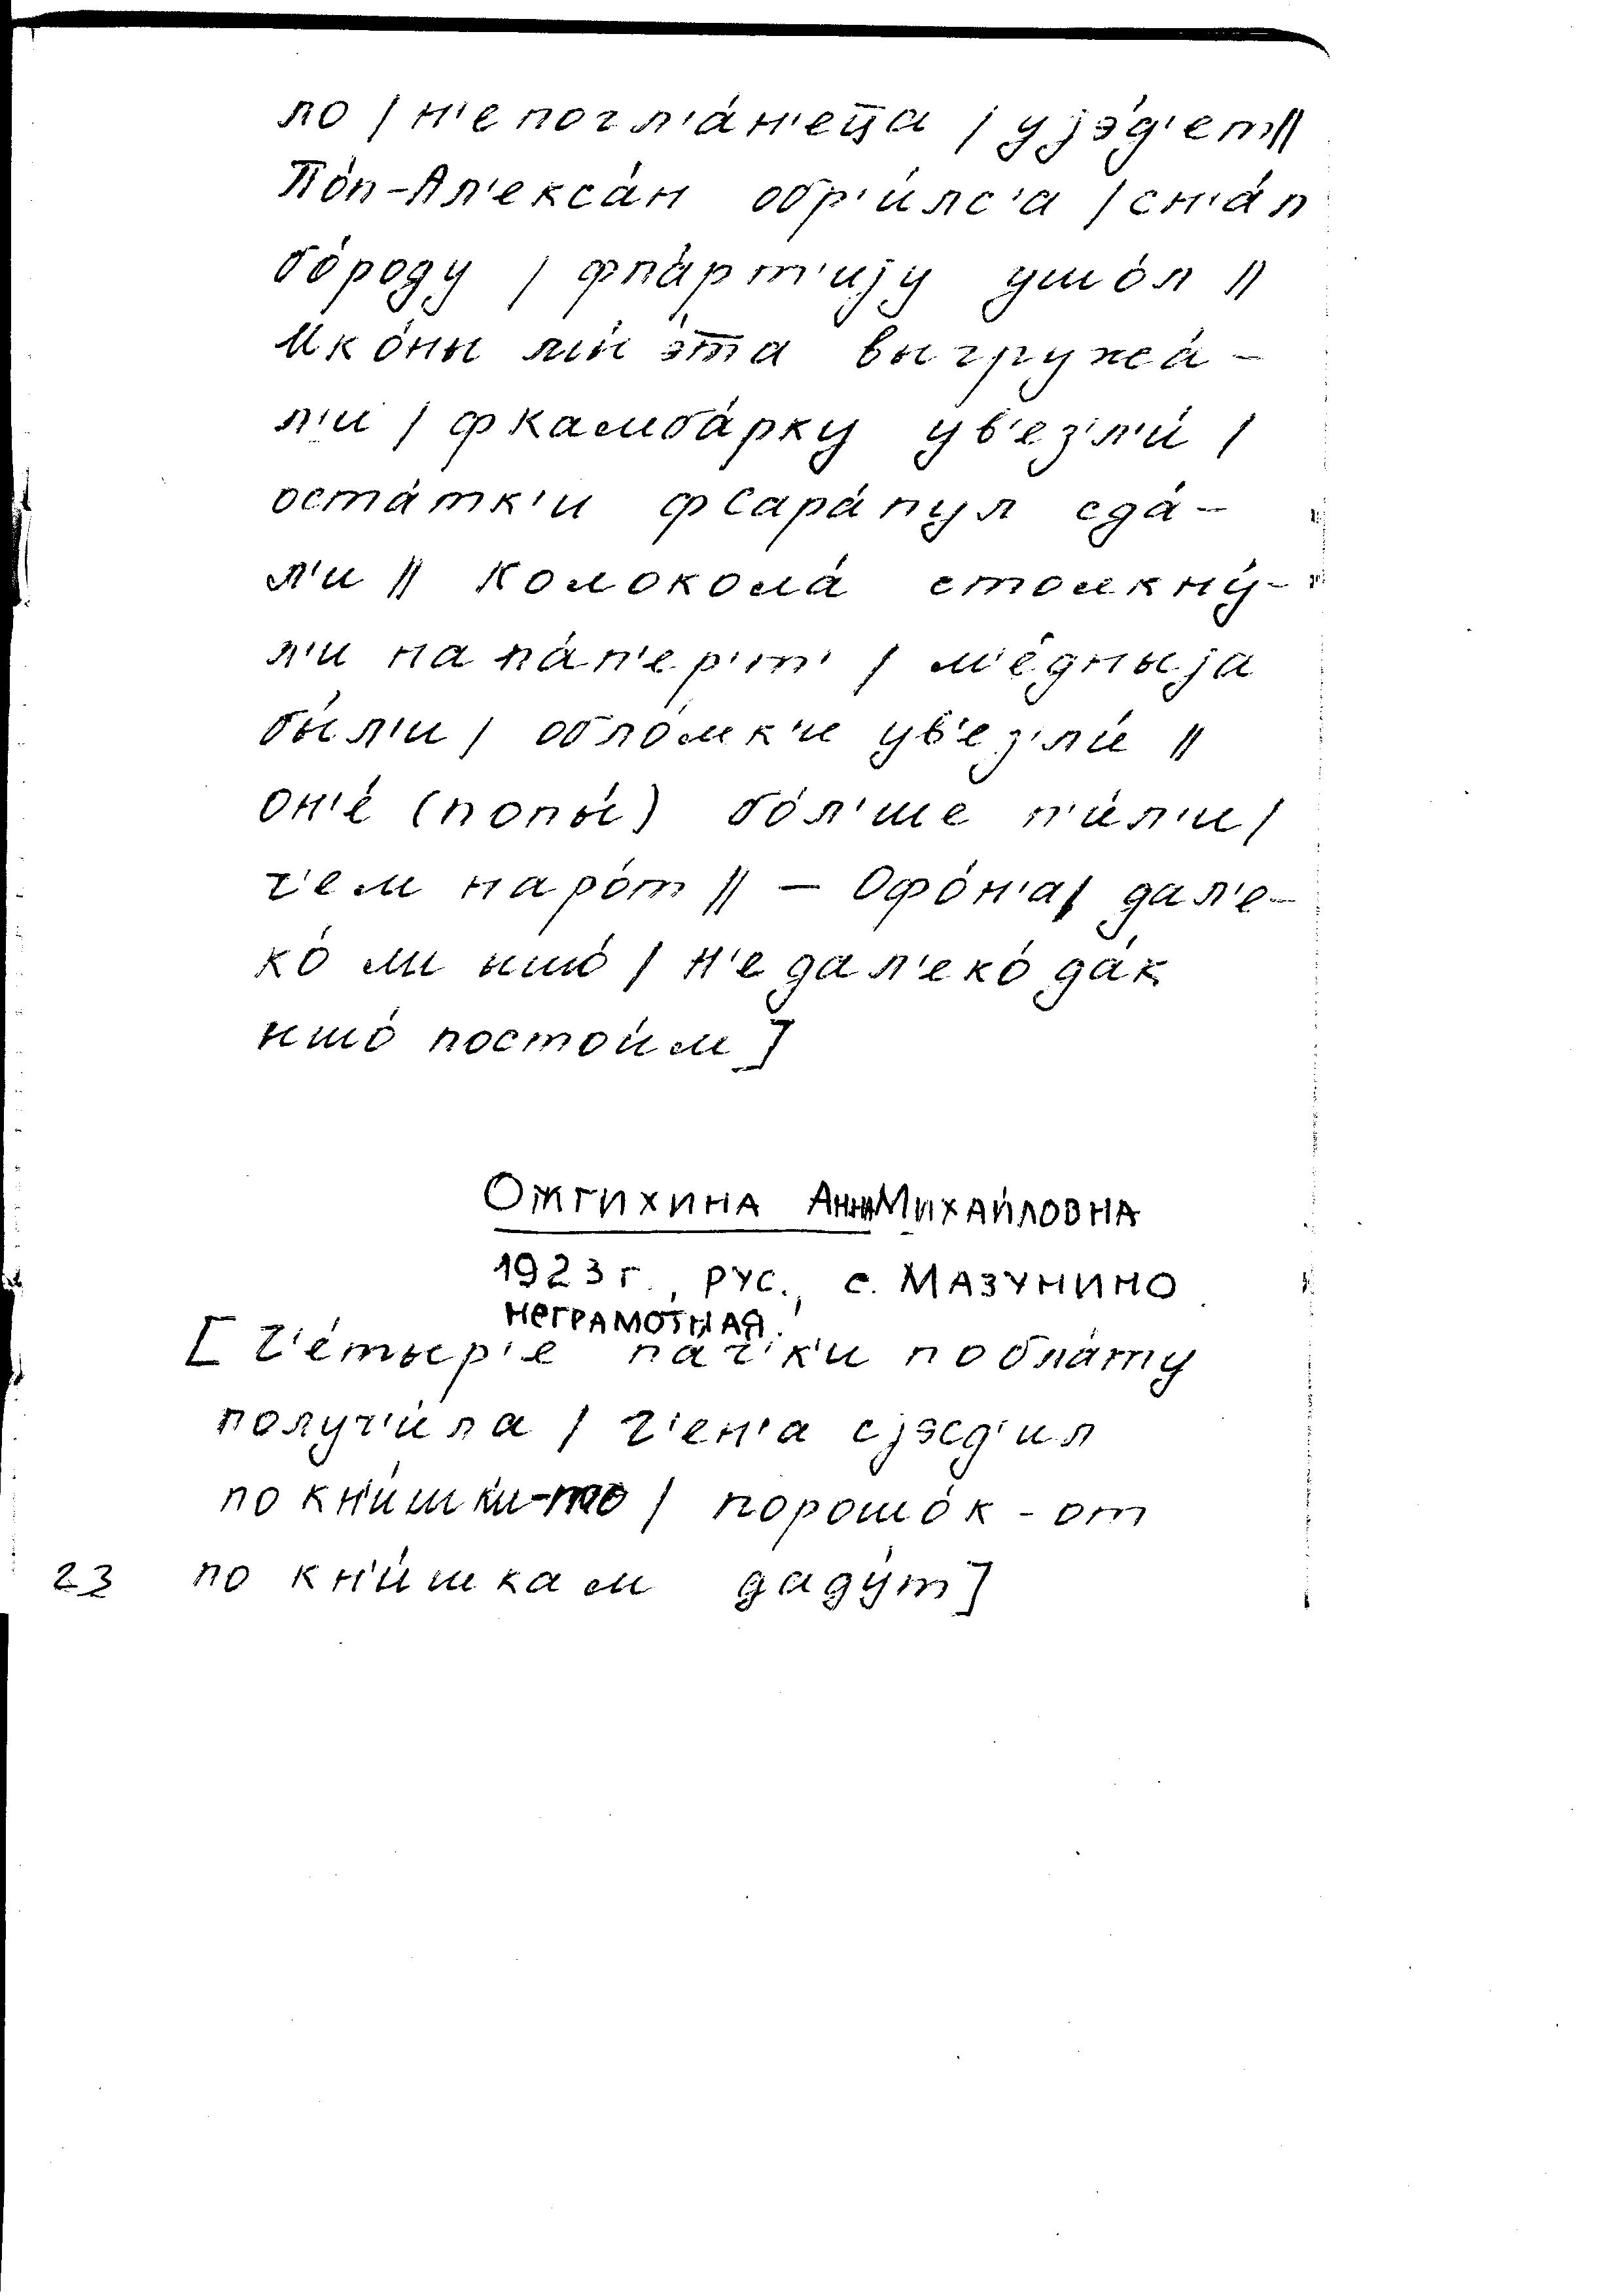 ло / н'е погл'а́н'еца / у jэ́д'ет //
По́п-Ал'екса́н обр'и́лс'а / сн'а́л
бо́роду / фпа́рт'иjу ушо́л //
Ико́ны мы́ э́та выгружа́-
л'и / ф Камба́рку ув'ез'л'и́ /
оста́тк'и ф Сара́пул сда́-
л'и // Колокола́ столкну́-
л'и на па́п'ер'т' / м'е́дныjа
бы́л'и / обло́мк'и ув'ез'ли́ //
он'е́ (попы́) бо́л'ше п'и́л'и /
ч'ем наро́т // – Офо́н'а / дал'е-
ко́ ли ишо́ / н'е дал'еко́ да́к
ишо́ постои́м ]
Ожгихина Анна Михайловна
1923 г., рус., с. Мазунино
неграмотная.
[ Ч'е́тыр'е па́ч'к'и по бла́ту
получ'и́ла / Г'ен'а сjэсд'ил
по кн'и́шк'и-то / порошо́к-от
23 по кн'и́шкам даду́т ]